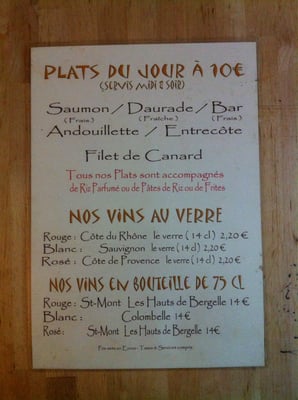 PLATS DU JOUR À 10€
(SERVIS MIDI & SOIR)
Saumon / Daurade / Bar
(Frais) (Fraîche) (Frais)
Andouillette / Entrecôte
Filet de Canard
Tous nos Plats sont accompagnés
de Riz Parfumé ou de Pâtes de Riz ou de Frites
NOS VINS AU VERRE
Rouge : Côte du Rhône le verre (14 cl) 2,20 €
Blanc : Sauvignon le verre (14 cl) 2,20 €
Rosé : Côte de Provence le verre (14 cl) 2,20 €
NOS VINS EN BOUTEILLE DE 75 CL
Rouge : St-Mont Les Hauts de Bergelle 14 €
Blanc : Colombelle 14 €
Rosé : St-Mont Les Hauts de Bergelle 14€
Prix nets en Euros - Taxes & Services compris